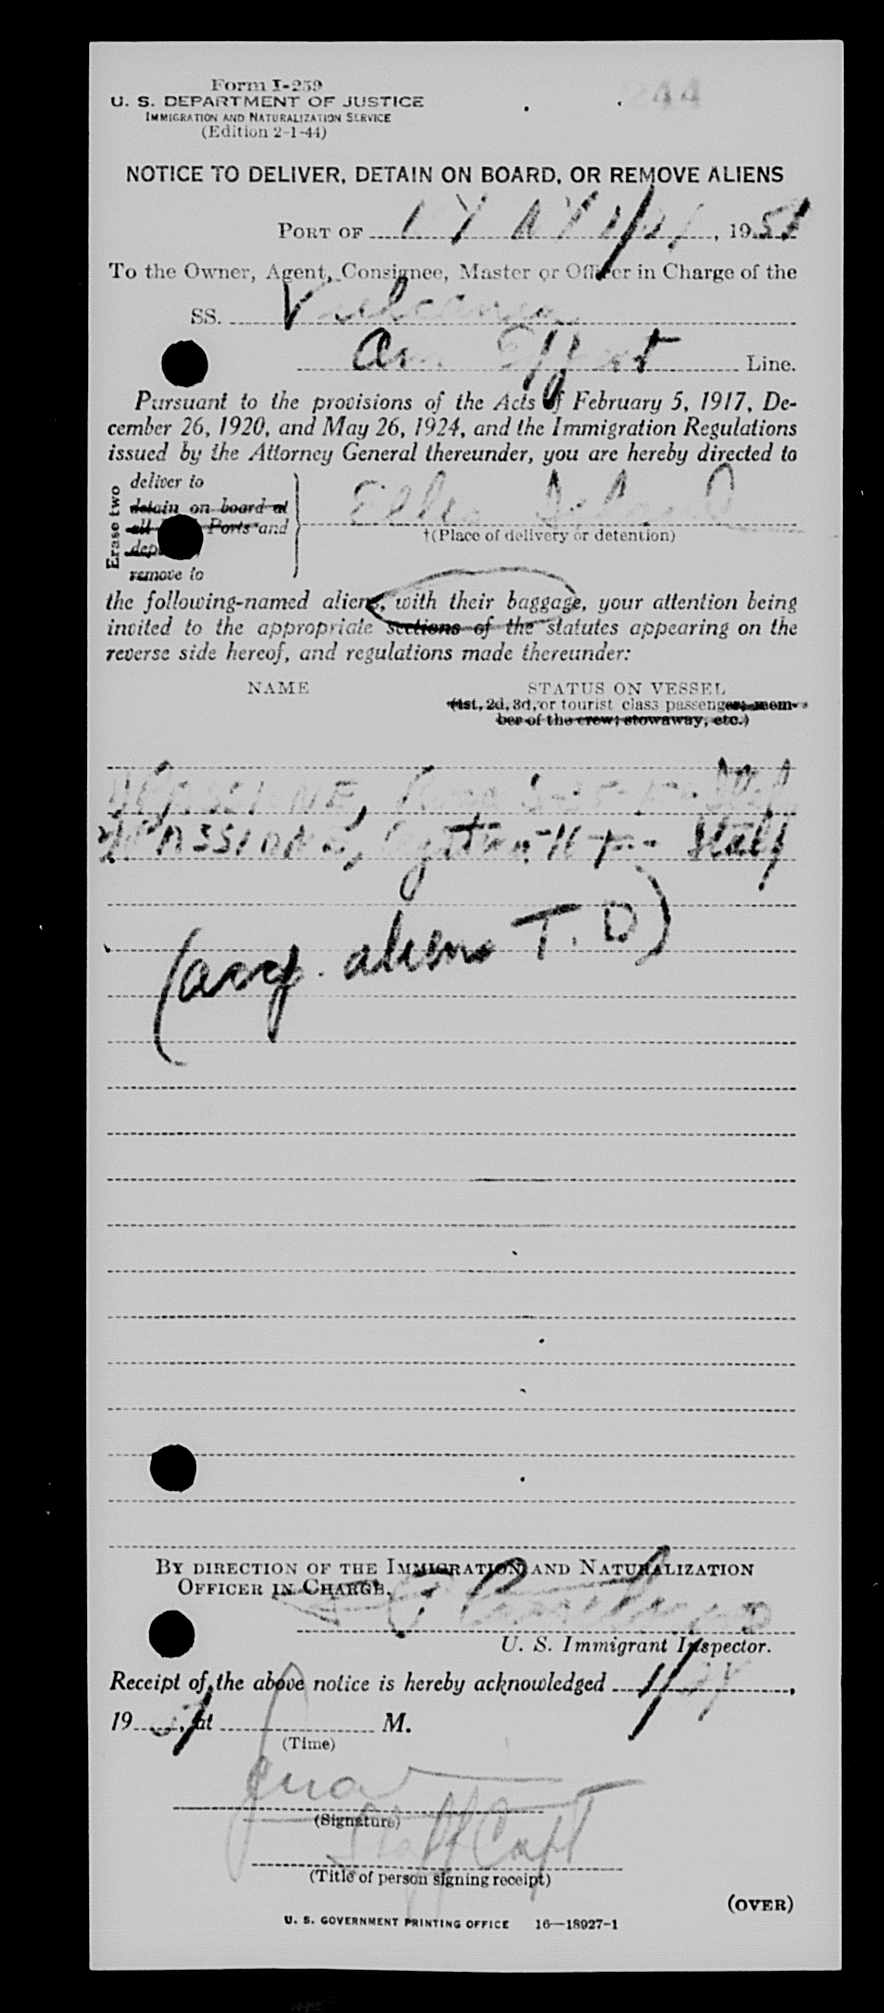 Form I-259
U. S. DEPARTMENT OF JUSTICE
IMMIGRATION AND NATURALIZATION SERVICE
(Edition 2-1-44)
44
NOTICE TO DELIVER, DETAIN ON BOARD, OR REMOVE ALIENS
PORT OF N Y N Y 1/21, 1951
To the Owner, Agent, Consignee, Master or Officer in Charge of the
SS. Vulcania
Am Export Line.
Pursuant to the provisions of the Acts of February 5, 1917, De-
cember 26, 1920, and May 26, 1924, and the Immigration Regulations
issued by the Attorney General thereunder, you are hereby directed to
Erase two
deliver to
detain on board at
all Ports and
remove to
Ellis Island
†(Place of delivery or detention)
the following-named aliens, with their baggage, your attention being
invited to the appropriate sections of the statutes appearing on the
reverse side hereof, and regulations made thereunder:
NAME STATUS ON VESSEL
(1st, 2d, 3d, or tourist class passenger; mem-
ber of the crew; stowaway, etc.)
Italy
Italy
(accp. aliens T.D)
BY DIRECTION OF THE IMMIGRATION AND NATURALIZATION
OFFICER IN CHARGE,
U. S. Immigrant Inspector.
Receipt of the above notice is hereby acknowledged 1/21,
1951, at M.
(Time)
(Signature)
Staff Capt
(Title of person signing receipt)
(OVER)
U. S. GOVERNMENT PRINTING OFFICE 16—18927-1